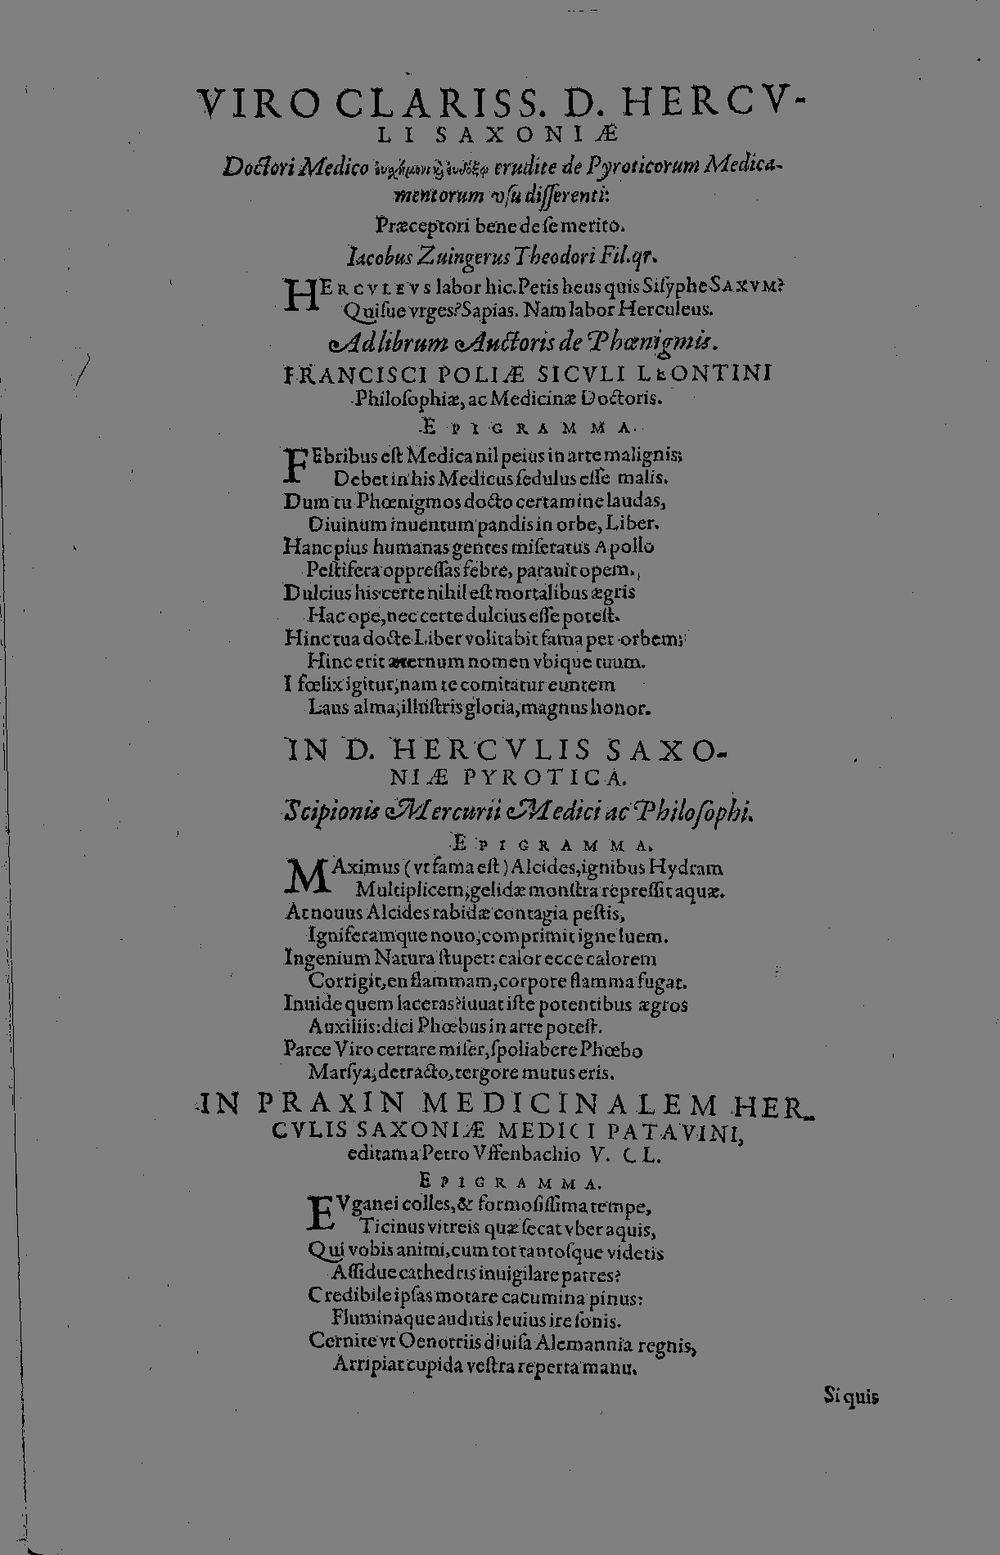 VIRO CLARISS. D. HERCV-
LI SAXONIÆ
Doctori Medico erudite de Pyroticorum Medica-
mentorum vſu diſſerenti:
Præceptori bene de ſe merito.
Iacobus Zuingerus Theodori Fil. qr.
HERCVLEVS labor hic. Petis heus quis Siſyphe SAXVM?
Quiſue vrges? Sapias. Nam labor Herculeus.
Ad librum Auctoris de Phœnigmis.
FRANCISCI POLIÆ SICVLI LEONTINI
Philoſophiæ, ac Medicinæ Doctoris.
EPIGRAMMA.
FEbribus eſt Medica nil peius in arte malignis;
Debet in his Medicus ſedulus eſſe malis.
Dum tu Phœnigmos docto certamine laudas,
Diuinum inuentum pandis in orbe, Liber.
Hanc pius humanas gentes miſeratus Apollo
Peſtifera oppreſſas febre, parauit opem.
Dulcius his certe nihil eſt mortalibus ægris
Hac ope, nec certe dulcius eſſe poteſt.
Hinc tua docte Liber volitabit fama per orbem;
Hinc erit æternum nomen vbique tuum.
I fœlix igitur, nam te comitatur euntem
Laus alma, illuſtris gloria, magnus honor.
IN D. HERCVLIS SAXO-
NIÆ PYROTICA.
Scipionis Mercurii Medici ac Philoſophi.
EPIGRAMMA.
MAximus (vt fama eſt) Alcides, ignibus Hydram
Multiplicem, gelidæ monſtra repreſſit aquæ.
At nouus Alcides rabidæ contagia peſtis,
Igniferamque nouo, comprimit igne luem.
Ingenium Natura ſtupet: calor ecce calorem
Corrigit, en flammam, corpore flamma fugat.
Inuide quem laceras? iuuat iſte potentibus ægros
Auxiliis: dici Phœbus in arte poteſt.
Parce Viro certare miſer, ſpoliabere Phœbo
Marſya, detracto, tergore mutus eris.
IN PRAXIN MEDICINALEM HER-
CVLIS SAXONIÆ MEDICI PATAVINI,
editam a Petro Vffenbachio V. CL.
EPIGRAMMA.
EVganei colles, & formoſiſſima tempe,
Ticinus vitreis quæ ſecat vber aquis,
Qui vobis animi, cum tot tantoſque videtis
Aſſidue cathedris inuigilare patres?
Credibile ipſas motare cacumina pinus:
Fluminaque auditis leuius ire ſonis.
Cernite vt Oenotriis diuiſa Alemannia regnis,
Arripiat cupida veſtra reperta manu.
Si quis